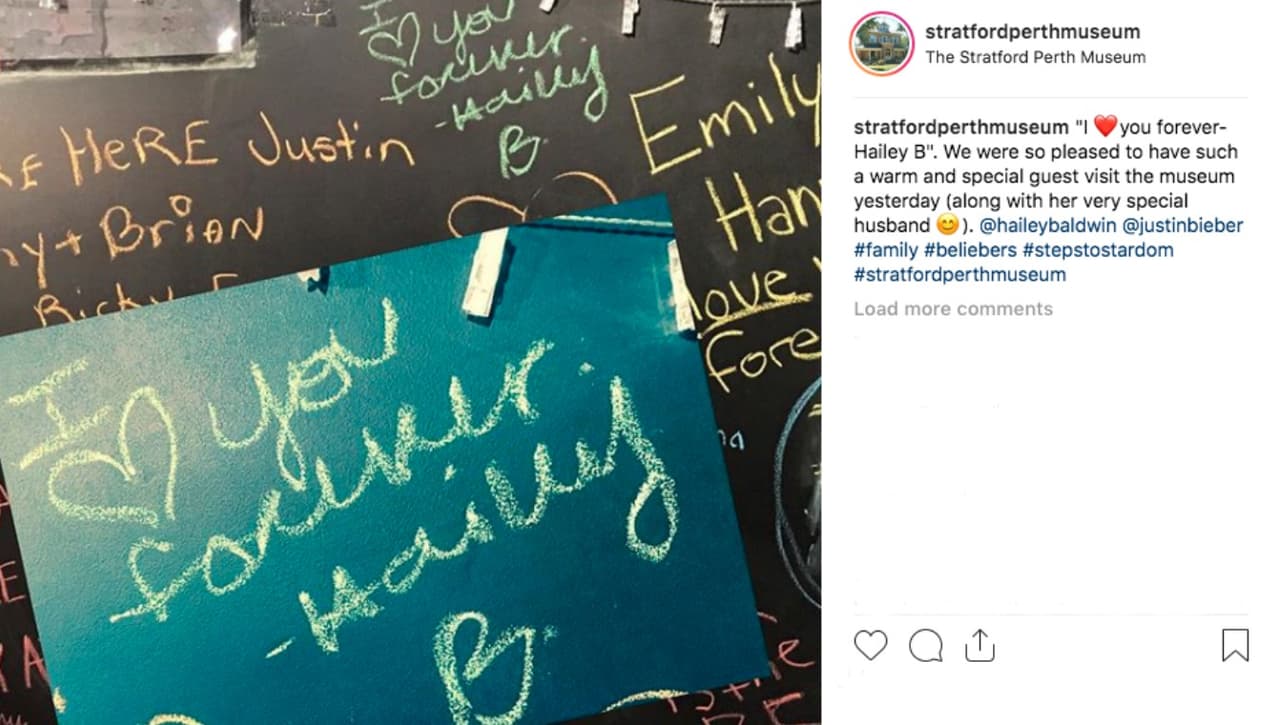 I ♡ you
forever
-Hailey
B
Emily
HERE Justin
+ BRIAN
Ricky
love
fore
I ♡ you
forever
-Hailey
B
stratfordperthmuseum
The Stratford Perth Museum
stratfordperthmuseum "I ❤️ you forever-
Hailey B". We were so pleased to have such
a warm and special guest visit the museum
yesterday (along with her very special
husband 😊). @haileybaldwin @justinbieber
#family #beliebers #stepstostardom
#stratfordperthmuseum
Load more comments